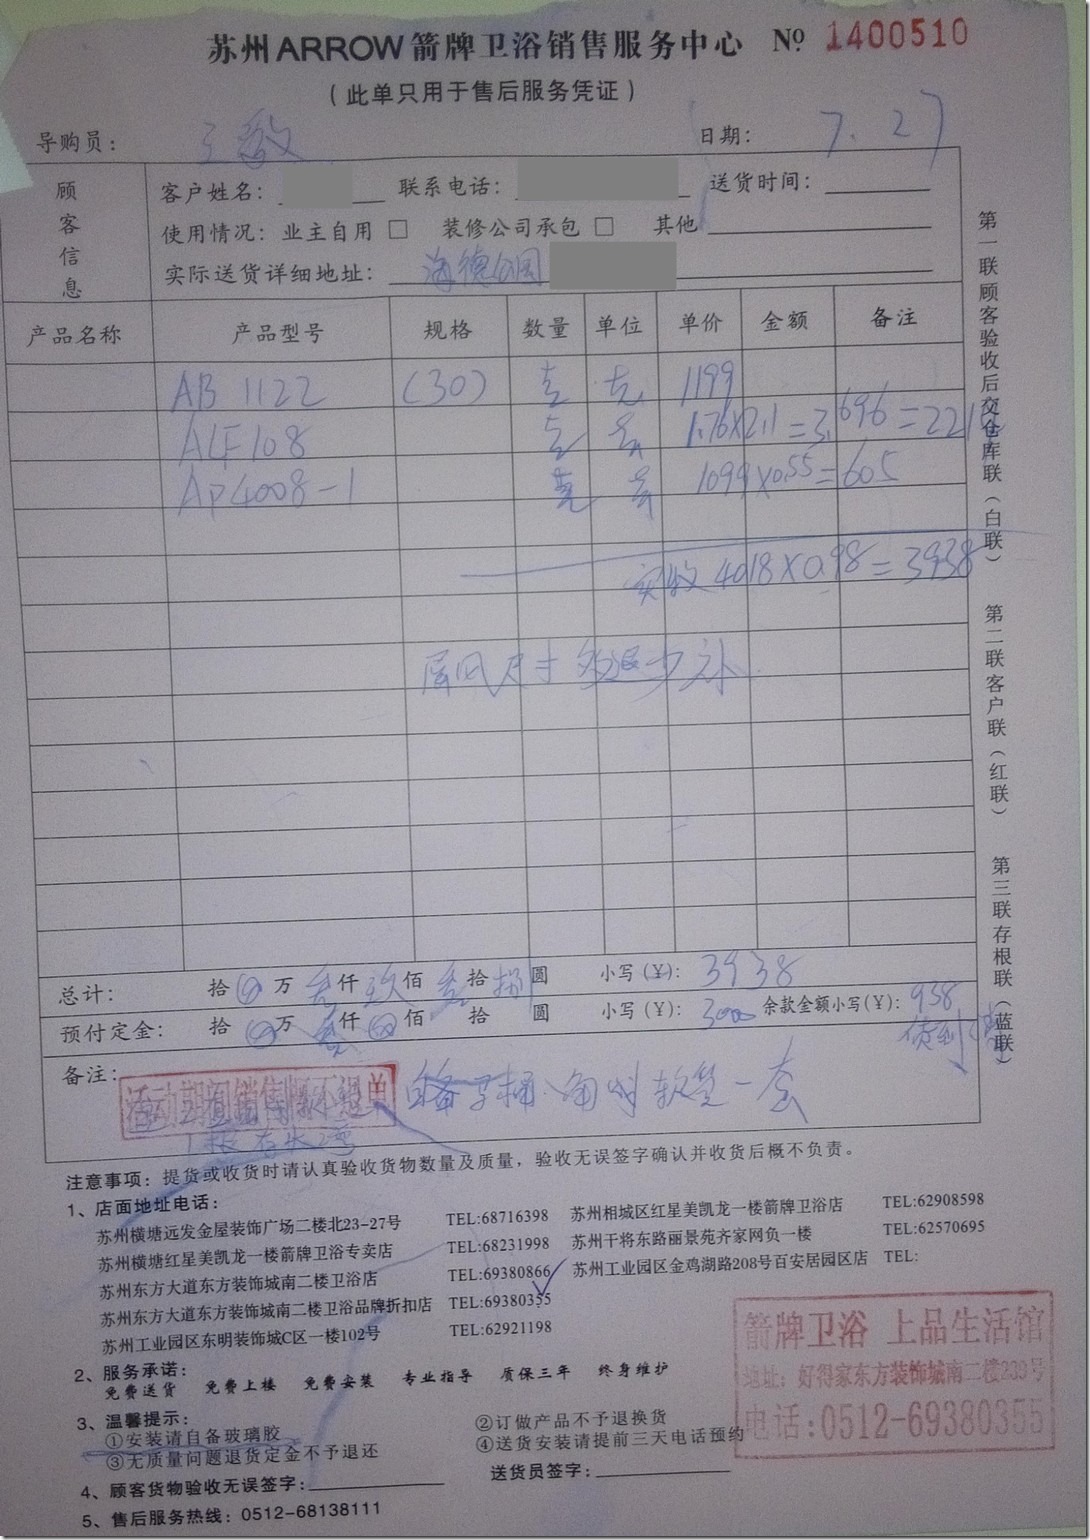 苏州ARROW箭牌卫浴销售服务中心 № 1400510
（此单只用于售后服务凭证）
导购员： 日期： 7.27
顾客信息
客户姓名： 联系电话： 送货时间：
使用情况：业主自用 □ 装修公司承包 □ 其他
实际送货详细地址： 海德公园
产品名称 产品型号 规格 数量 单位 单价 金额 备注
AB 1122 (30) 壹 1199
ALF108 1.76×2.1=3.696=221
AP4008-1 1099×0.55=605
实收 4018×0.98=3938
屏风尺寸多退少补
总计： 拾 万 叁仟 玖佰 叁拾 捌圆 小写(¥)： 3938
预付定金： 拾 万 叁仟 佰 拾 圆 小写(¥)： 3000 余款金额小写(¥)： 938
货到
备注： 活动期间销售概不退单 马桶、角阀软管一套
注意事项：提货或收货时请认真验收货物数量及质量，验收无误签字确认并收货后概不负责。
1、店面地址电话：
苏州横塘远发金屋装饰广场二楼北23-27号 TEL:68716398 苏州相城区红星美凯龙一楼箭牌卫浴店 TEL:62908598
苏州横塘红星美凯龙一楼箭牌卫浴专卖店 TEL:68231998 苏州干将东路丽景苑齐家网负一楼 TEL:62570695
苏州东方大道东方装饰城南二楼卫浴店 TEL:69380866 苏州工业园区金鸡湖路208号百安居园区店 TEL:
苏州东方大道东方装饰城南二楼卫浴品牌折扣店 TEL:69380355
苏州工业园区东明装饰城C区一楼102号 TEL:62921198
2、服务承诺：
免费送货 免费上楼 免费安装 专业指导 质保三年 终身维护
3、温馨提示：
①安装请自备玻璃胶 ②订做产品不予退换货
③无质量问题退货定金不予退还 ④送货安装请提前三天电话预约
4、顾客货物验收无误签字： 送货员签字：
5、售后服务热线：0512-68138111
箭牌卫浴 上品生活馆
地址：好得家东方装饰城南二楼239号
电话：0512-69380355
第一联顾客验收后交仓库联（白联）
第二联客户联（红联）
第三联存根联（蓝联）